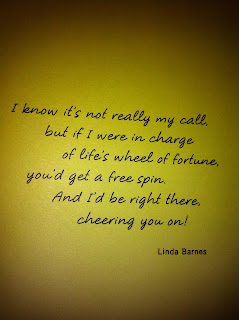 I know it's not really my call,
but if I were in charge
of life's wheel of fortune,
you'd get a free spin.
And I'd be right there,
cheering you on!
Linda Barnes